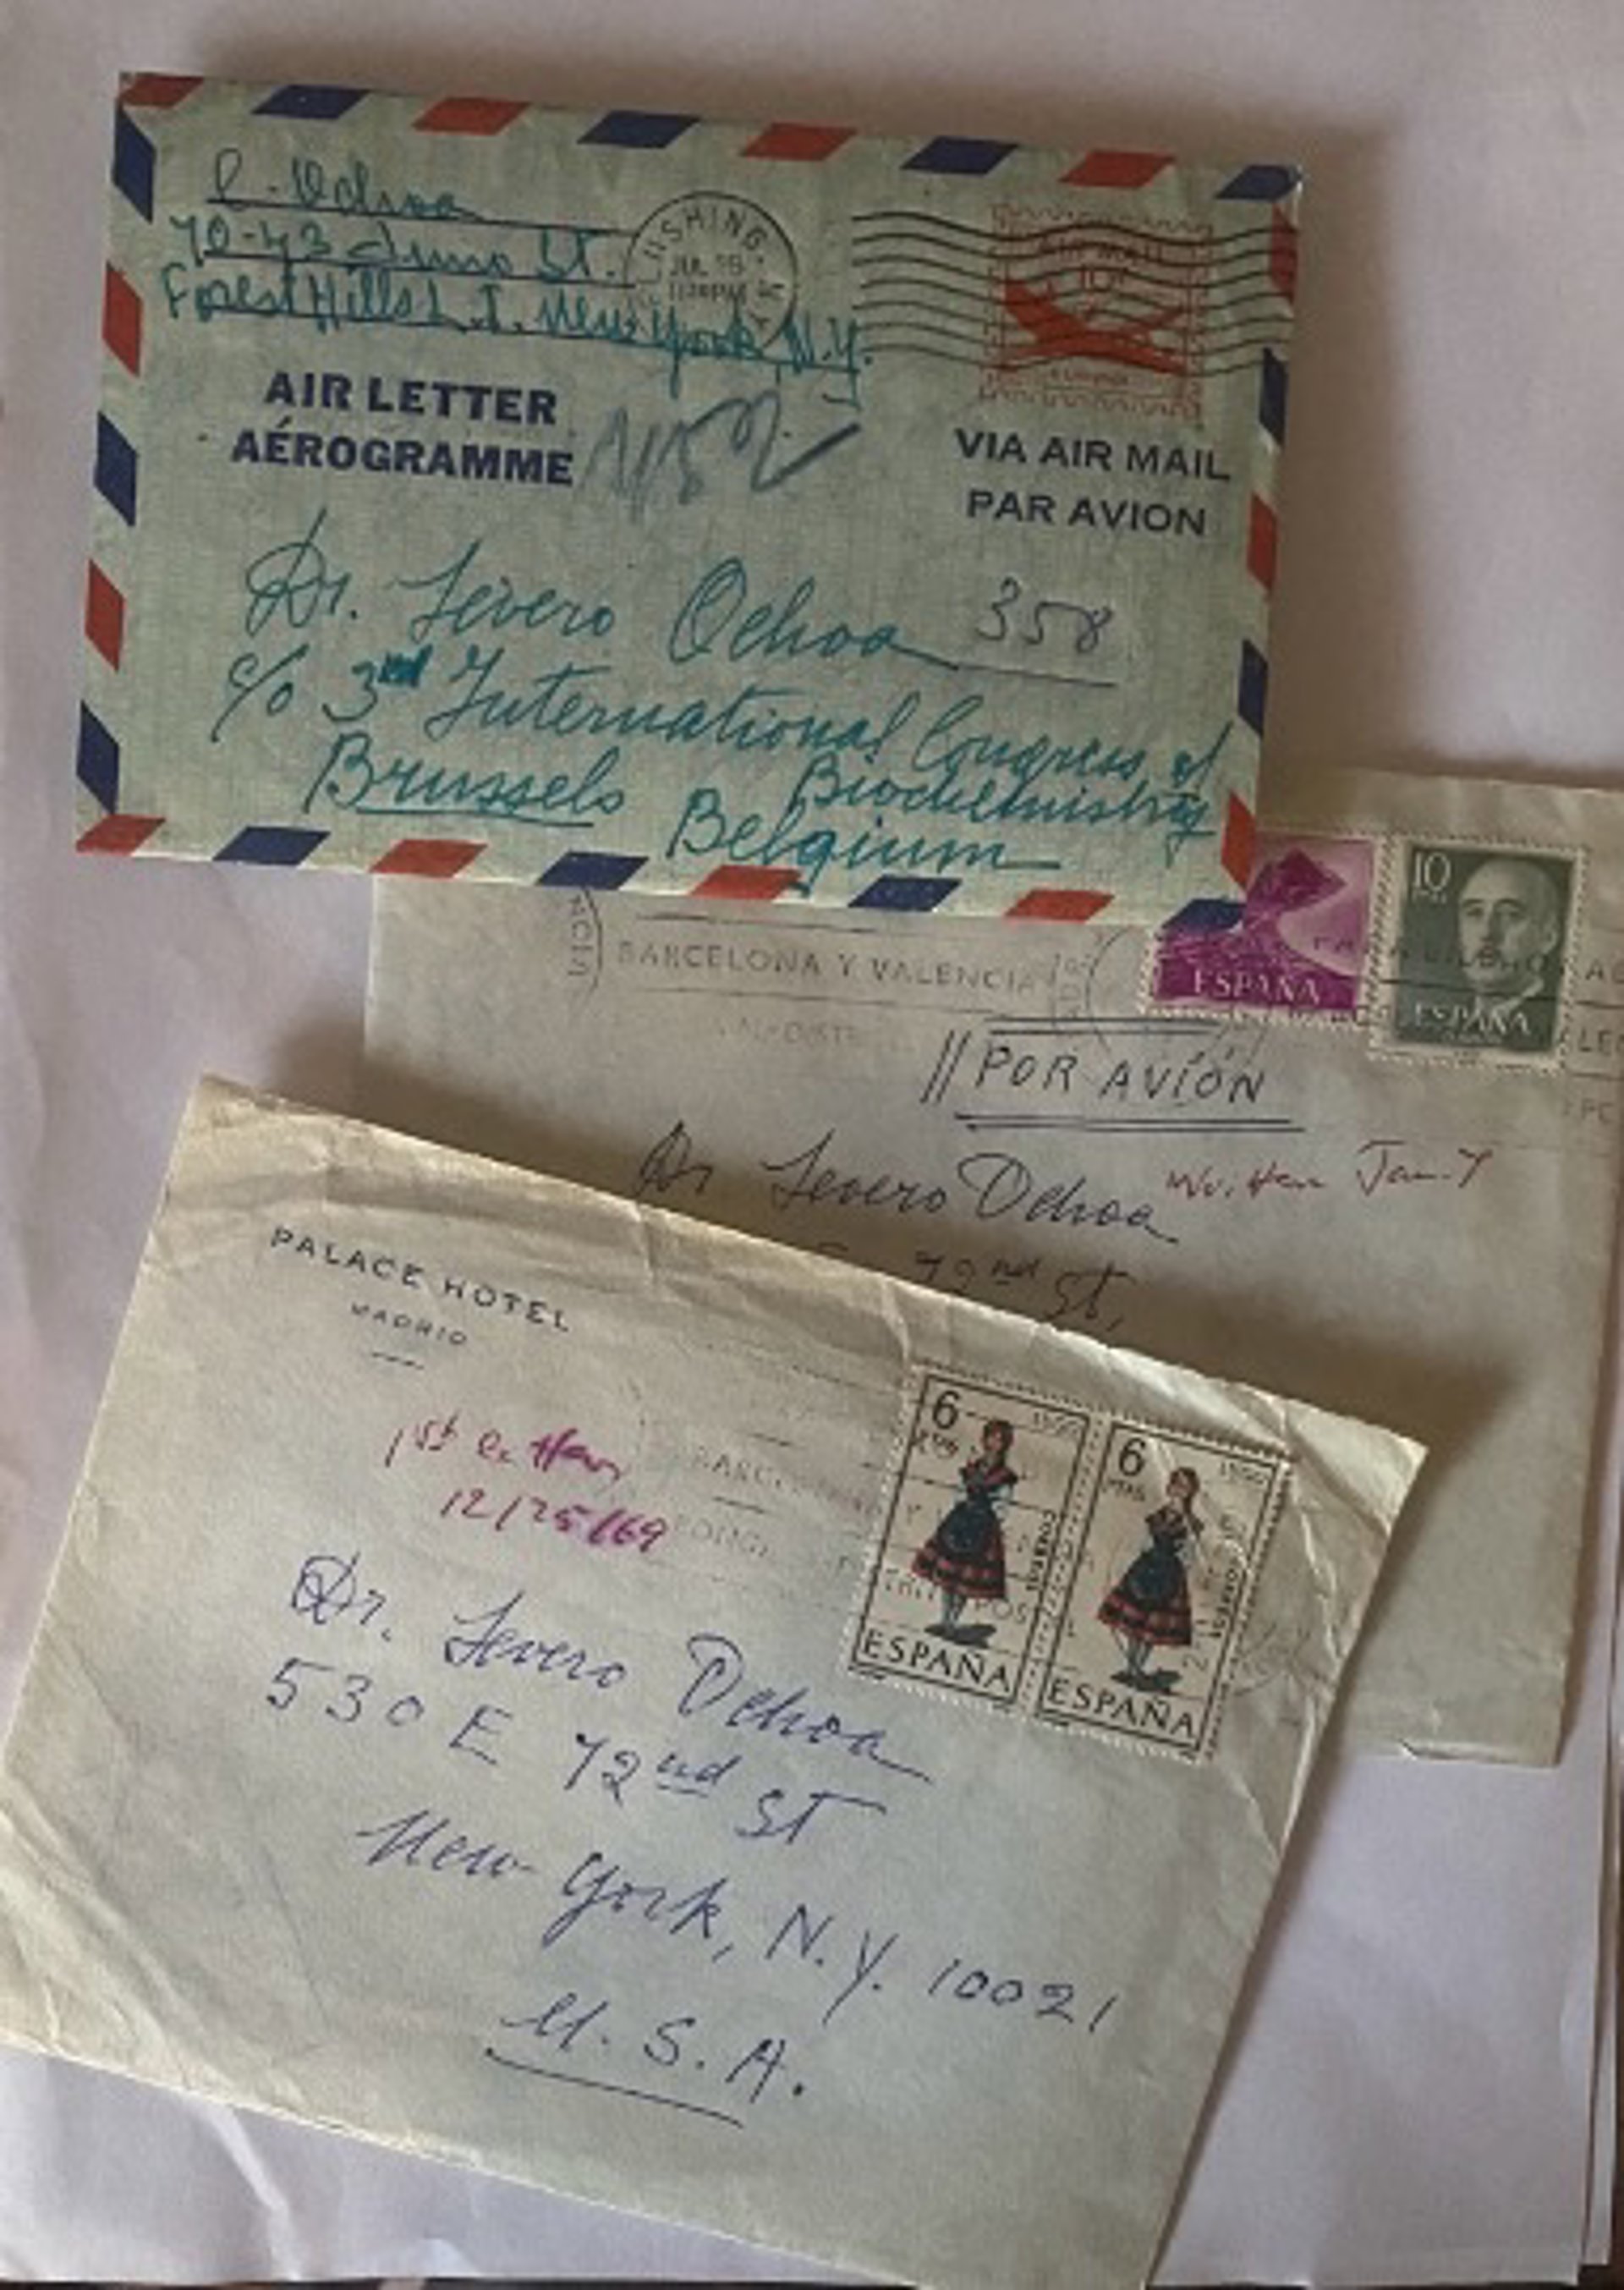 C. Ochoa
70-43 Juno St.
Forest Hills L. I. New York, N.Y.
USHING
JUL
AIR MAIL
10¢
AIR LETTER
AÉROGRAMME
VIA AIR MAIL
PAR AVION
Dr. Severo Ochoa 358
c/o 3rd International Congress of
Biochemistry
Brussels
Belgium
NCIA
BARCELONA Y VALENCIA
ESPAÑA
10
ESPAÑA
POR AVIÓN
Dr Severo Ochoa
72nd St,
PALACE HOTEL
MADRID
1st
12/25/69
6
PTAS
CORREOS
ESPAÑA
6
PTAS
CORREOS
ESPAÑA
Dr. Severo Ochoa
530 E 72nd St
New York, N.Y. 10021
U.S.A.